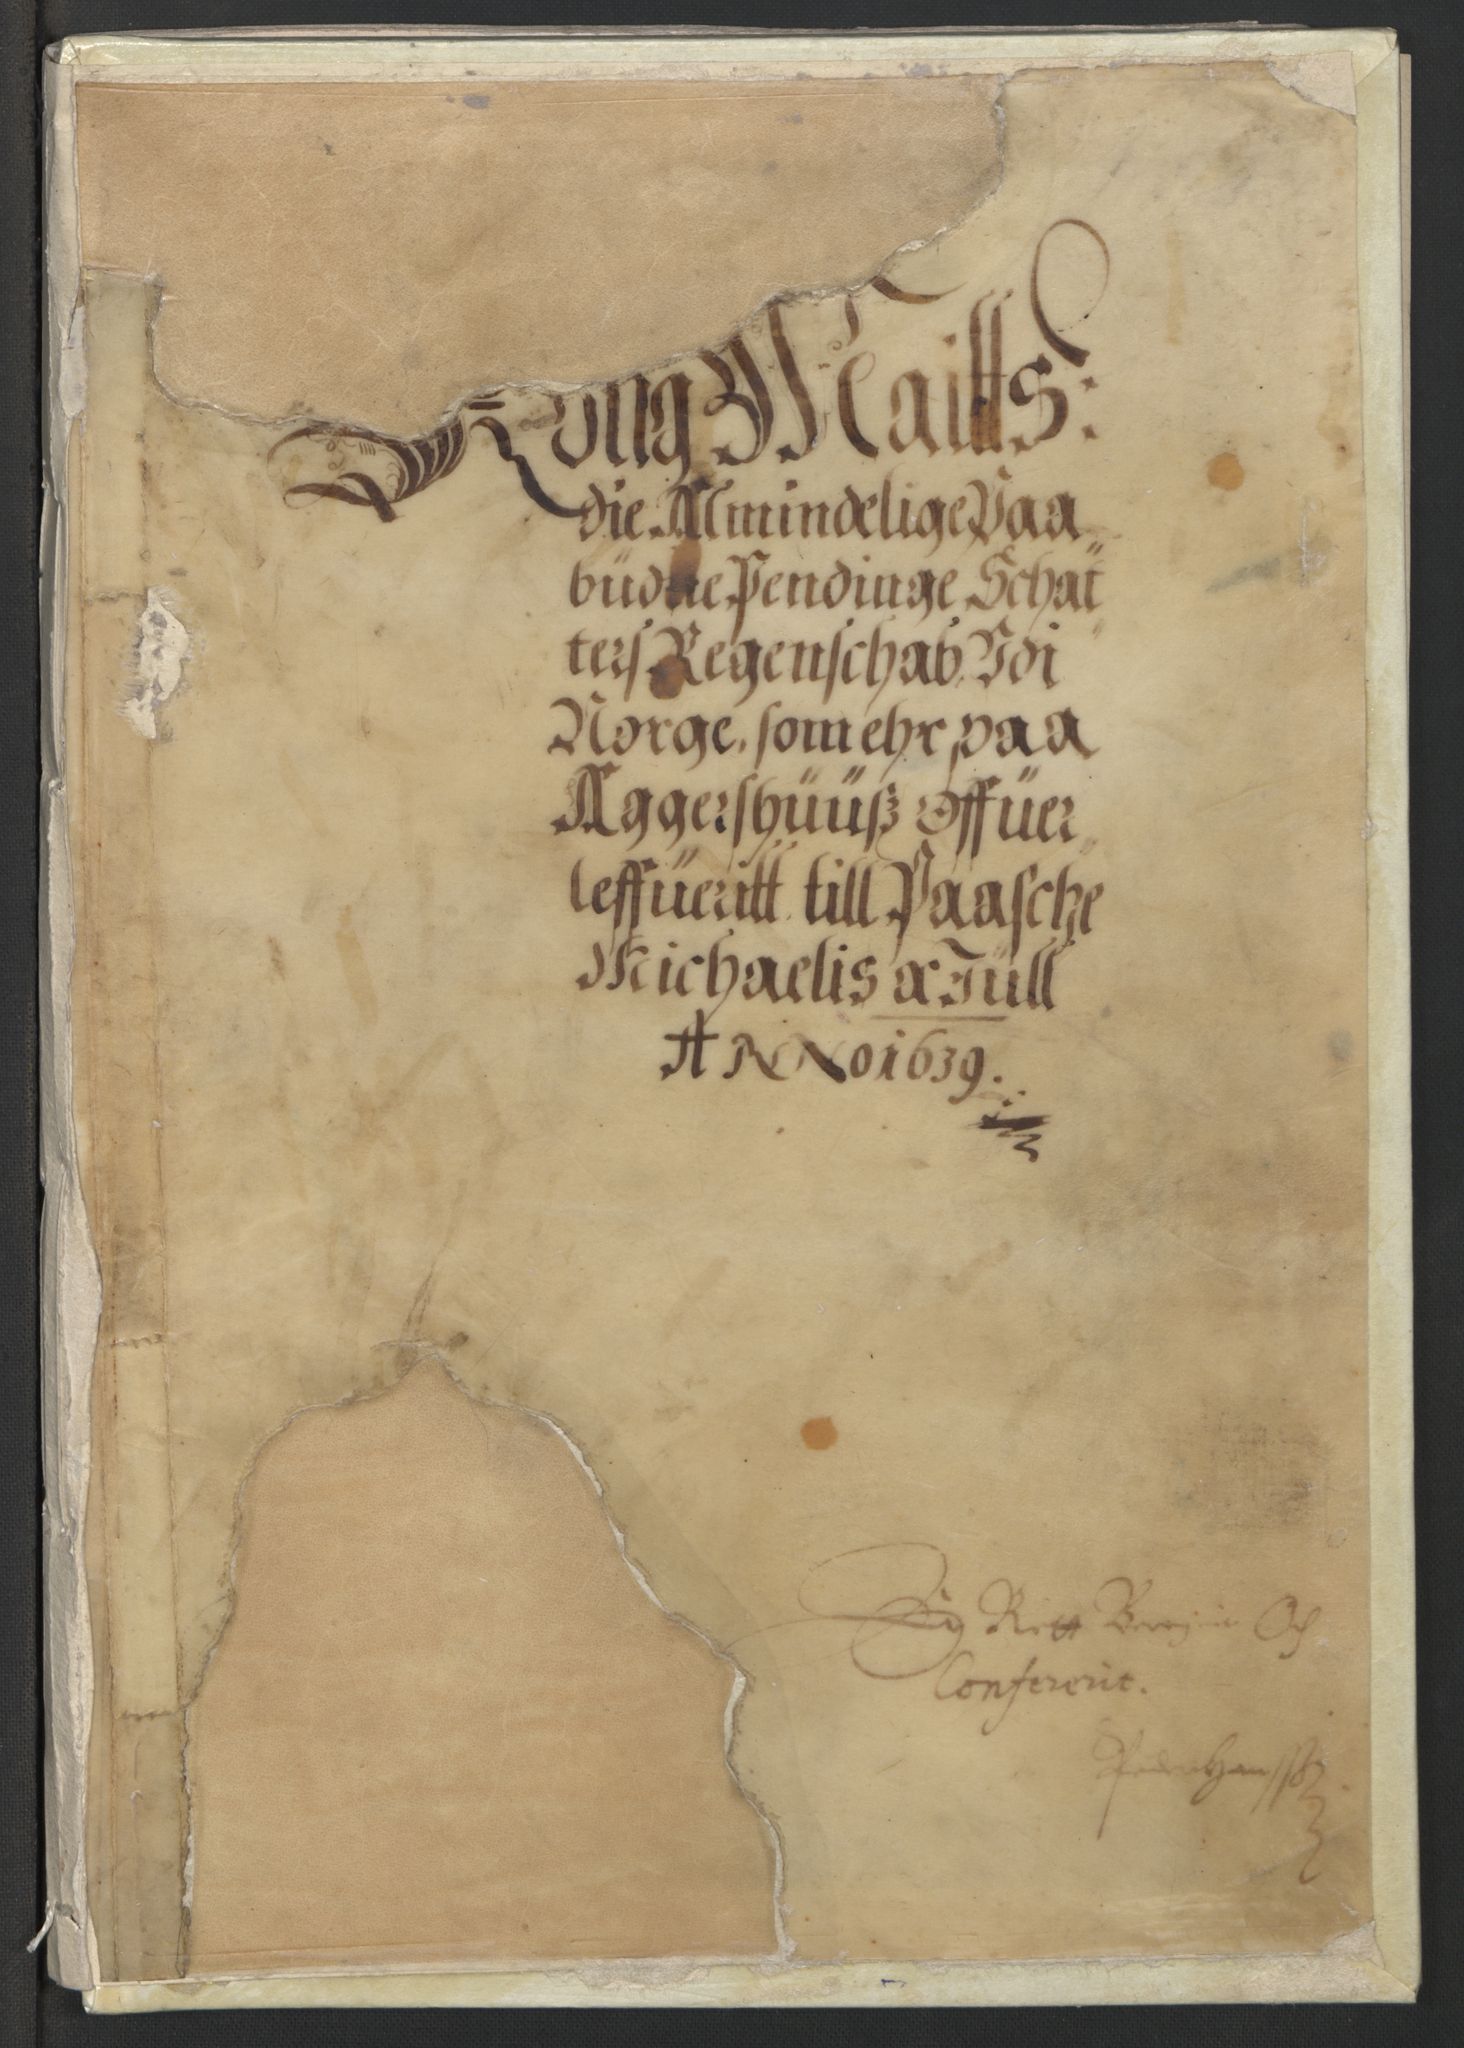 Kong Maitts:
die Almindelige Paa„
büdne Pendinge Schat„
ters Regenschab, Vdi
Norge, som ehr paa
Aggershüüß Offüer„
leffüeritt till Paasche
Michaelis & Jüll
ANNO 1639.
Rett Och
Confererit.
Peder Hanss